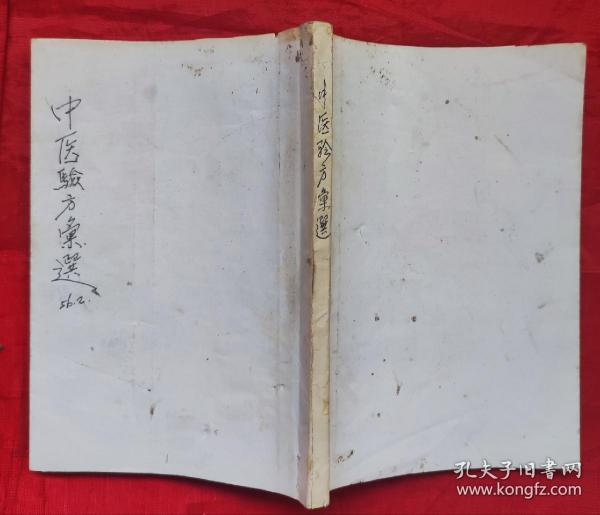 中医驗方彙選
56.2.
中医验方彙選
孔夫子旧書网
www.kongfz.com